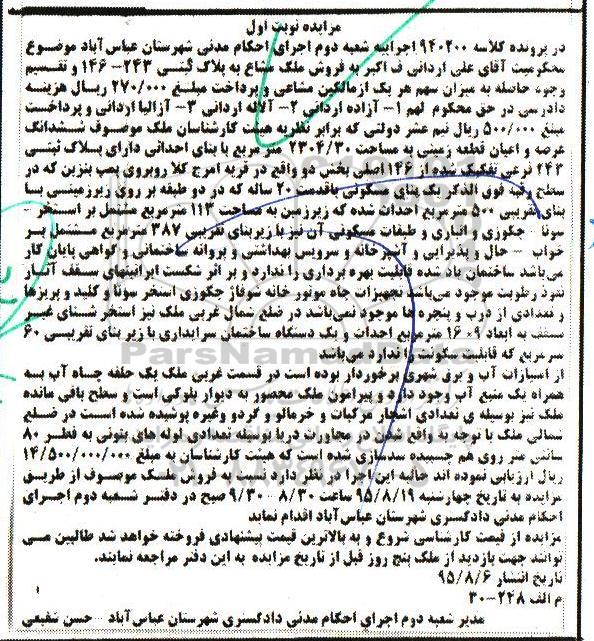 مزایده نوبت اول
در پرونده کلاسه ۹۴۰۲۰۰ اجراییه شعبه دوم اجرای احکام مدنی شهرستان عباس آباد موضوع
محکومیت آقای علی اردانی ف اکبر به فروش ملک مشاع به پلاک ثبتی ۲۴۳-۱۴۶ و تقسیم
وجوه حاصله به میزان سهم هر یک ازمالکین مشاعی و پرداخت مبلغ ۲۷۰/۰۰۰ ریال هزینه
دادرسی در حق محکوم لهم ۱- آزاده اردانی ۲- آلاله اردانی ۳- آزالیا اردانی و پرداخت
مبلغ ۵۰۰/۰۰۰ ریال نیم عشر دولتی که برابر نظریه هیئت کارشناسان ملک موصوف ششدانگ
عرصه و اعیان قطعه زمینی به مساحت ۲۳۰۴/۳۰ متر مربع با بنای احداثی دارای پلاک ثبتی
۲۴۳ فرعی تفکیک شده از ۱۴۶ اصلی بخش دو واقع در قریه امرج کلا روبروی پمپ بنزین که در
سطح رقبه فوق الذکر یک بنای مسکونی باقدمت ۲۰ ساله که در دو طبقه بر روی زیرزمینی با
بنای تقریبی ۵۰۰ متر مربع احداث شده که زیرزمین به مساحت ۱۱۳ مترمربع مشتمل بر استخر -
سونا - جکوزی و انباری و طبقات مسکونی آن نیز با زیربنای تقریبی ۳۸۷ مترمربع مشتمل بر
خواب - حال و پذیرایی و آشپزخانه و سرویس بهداشتی و پروانه ساختمانی و گواهی پایان کار
می‌باشد ساختمان یاد شده قابلیت بهره برداری را ندارد و بر اثر شکست ایرانیتهای سقف آثار
نفوذ رطوبت موجود می‌باشد تجهیزات چاه موتور خانه شوفاژ جکوزی استخر سونا و کلید و پریزها
و تعدادی از درب و پنجره ها موجود نمی‌باشد در ضلع شمال غربی ملک نیز استخر شنای غیر
مسقف به ابعاد ۹*۱۶ مترمربع احداث و یک دستگاه ساختمان سرایداری با زیر بنای تقریبی ۶۰
متر مربع که قابلیت سکونت را ندارد می‌باشد
از امتیازات آب و برق شهری برخوردار بوده است در قسمت غربی ملک یک حلقه چاه آب به
همراه یک منبع آب وجود دارد و پیرامون ملک محصور به دیوار بلوکی است و سطح باقی مانده
ملک نیز بوسیله ی تعدادی اشجار مرکبات و خرمالو و گردو وغیره پوشیده شده است در ضلع
شمالی ملک با توجه به واقع شدن در مجاورت دریا بوسیله تعدادی لوله های بتونی به قطر ۸۰
سانتی متر روی هم چسبیده سدسازی شده است که هیئت کارشناسان به مبلغ ۱۴/۵۰۰/۰۰۰/۰۰۰
ریال ارزیابی نموده اند حالیه این اجرا در نظر دارد نسبت به فروش ملک موصوف از طریق
مزایده به تاریخ چهارشنبه ۹۵/۸/۱۹ ساعت ۸/۳۰ - ۹/۳۰ صبح در دفتر شعبه دوم اجرای
احکام مدنی دادگستری شهرستان عباس آباد اقدام نماید
مزایده از قیمت کارشناسی شروع و به بالاترین قیمت پیشنهادی فروخته خواهد شد طالبین می
توانند جهت بازدید از ملک پنج روز قبل از تاریخ مزایده به این دفتر مراجعه نمایند.
تاریخ انتشار ۹۵/۸/۶
م الف ۲۲۸-۳۰
مدیر شعبه دوم اجرای احکام مدنی دادگستری شهرستان عباس آباد - حسن شفیعی